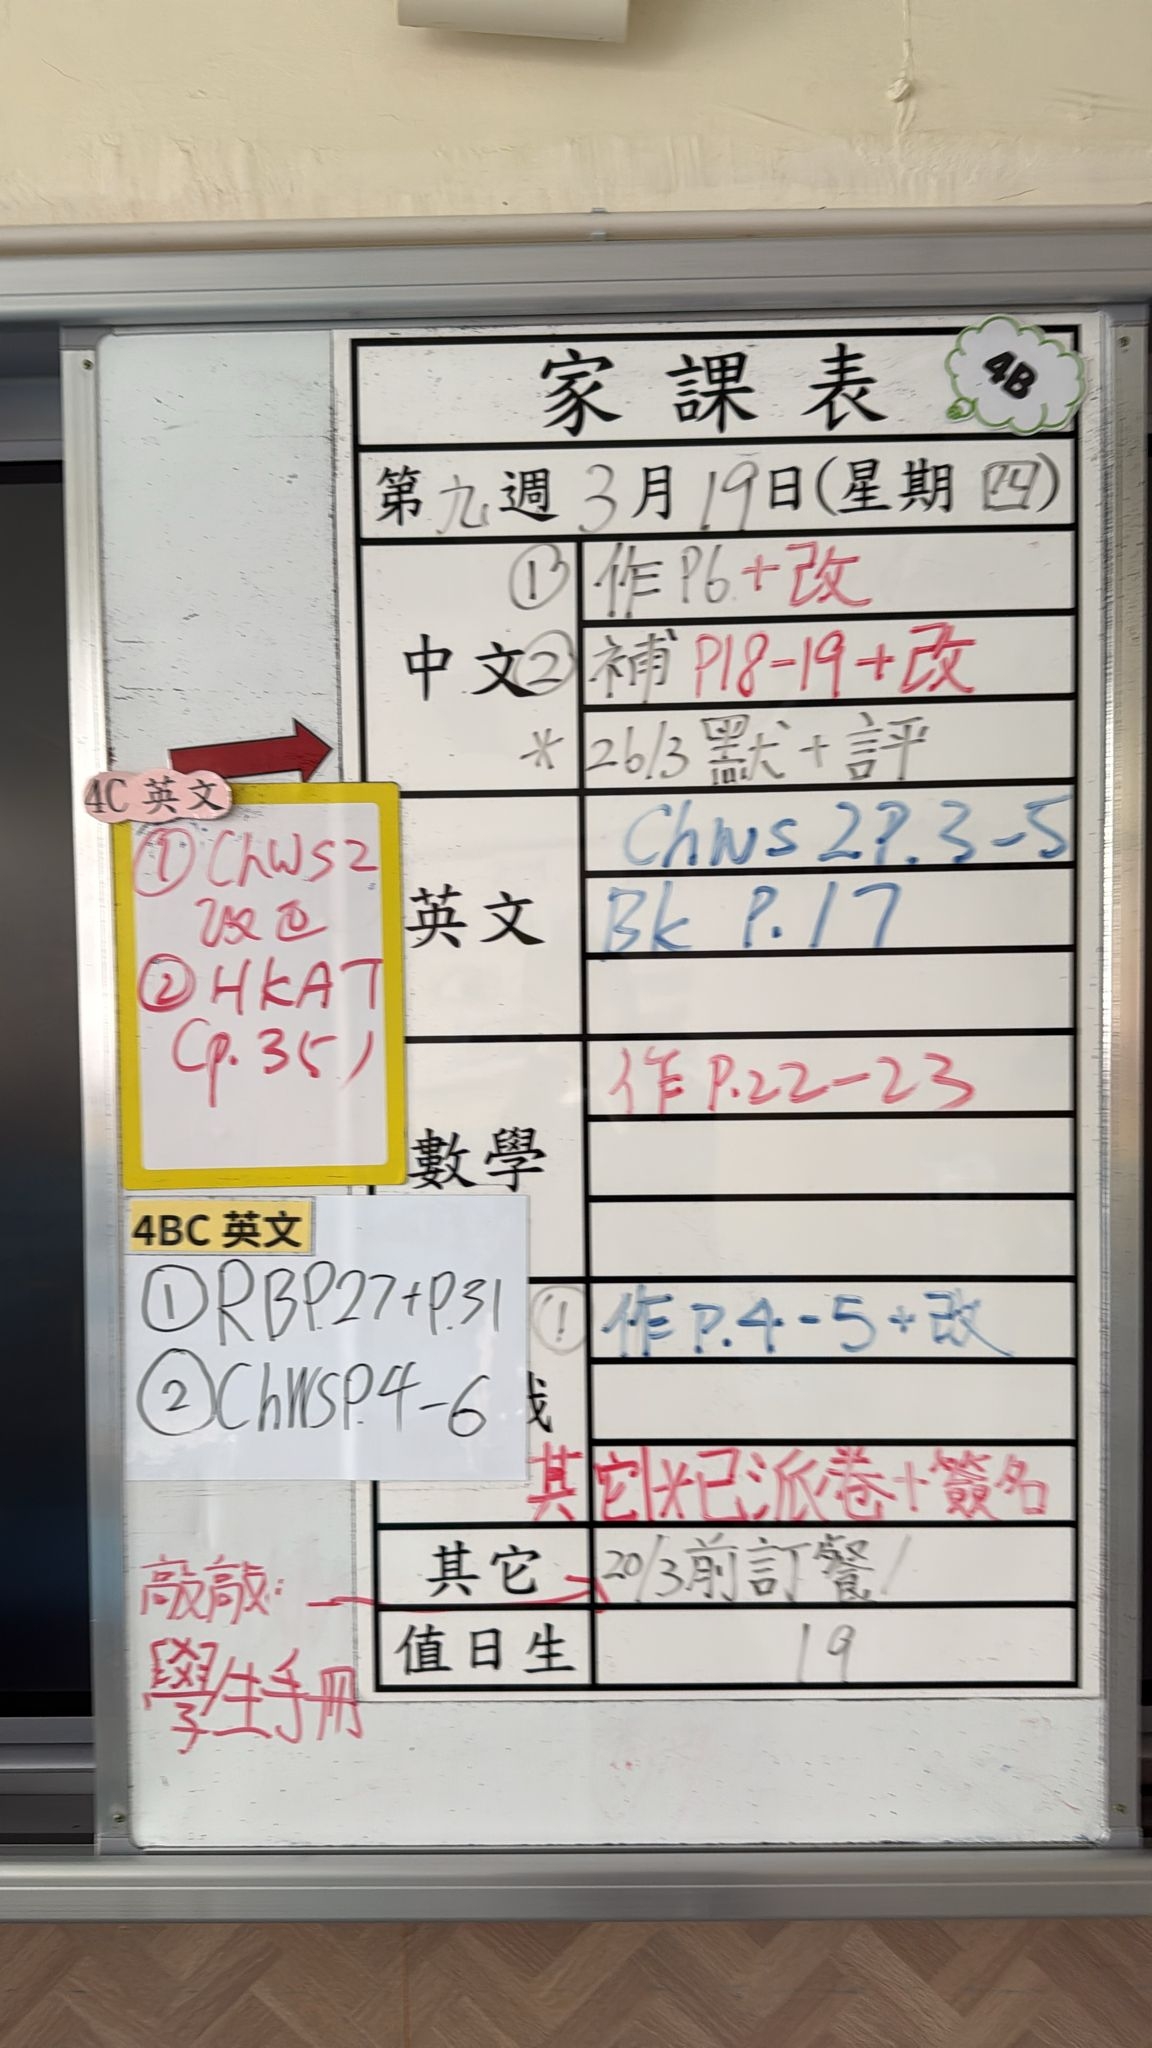 家課表
4B
第九週 3月19日(星期四)
中文
① 作P6+改
② 補 P18-19+改
* 26/3默+評
英文
ChWS 2P.3-5
Bk P.17
數學
作P.22-23
① 作P.4-5+改
其它|*已派卷+簽名
其它
20/3前訂餐
值日生
19
4C 英文
①ChWS2
改正
②HKAT
(p.35)
4BC 英文
①RBP.27+P.31
②ChWSP.4-6
學生手冊